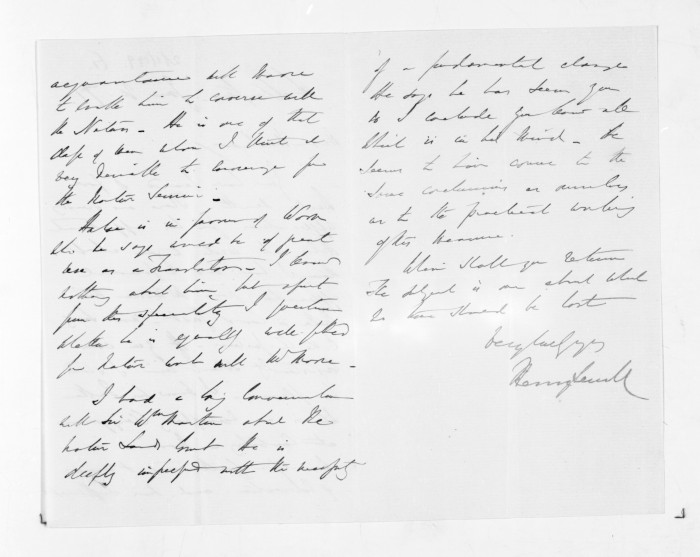 acquaintance with Maori
to enable him to converse with
the Natives - He is one of that
class of men whom I think it
very desirable to encourage for
the Native Service -
Halse is in favor of
who he says would be of great
use as a Translator - I know
nothing about him, but apart
from this speciality I question
whether he is equally well fitted
for Native work with Mr Moore -
I had a long conversation
with Sir Wm Martin about the
Native Land Court He is
deeply impressed with the necessity
of a fundamental change
He says he has seen you
so I conclude you know all
that is in his mind - He
seems to have come to the
same conclusions as ourselves
as to the practical working
of this measure.
When shall you return
The subject is one about which
no time should be lost
Very truly yrs
Henry Sewell